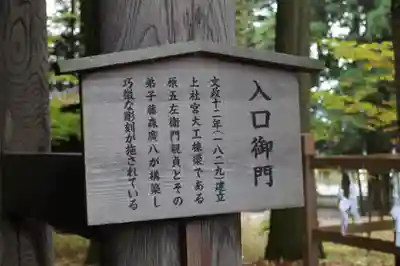 入口御門
文政十二年(一八二九)建立
上社宮大工棟梁である
原五左衛門親貞とその
弟子藤森廣八が構築し
巧緻な彫刻が施されている